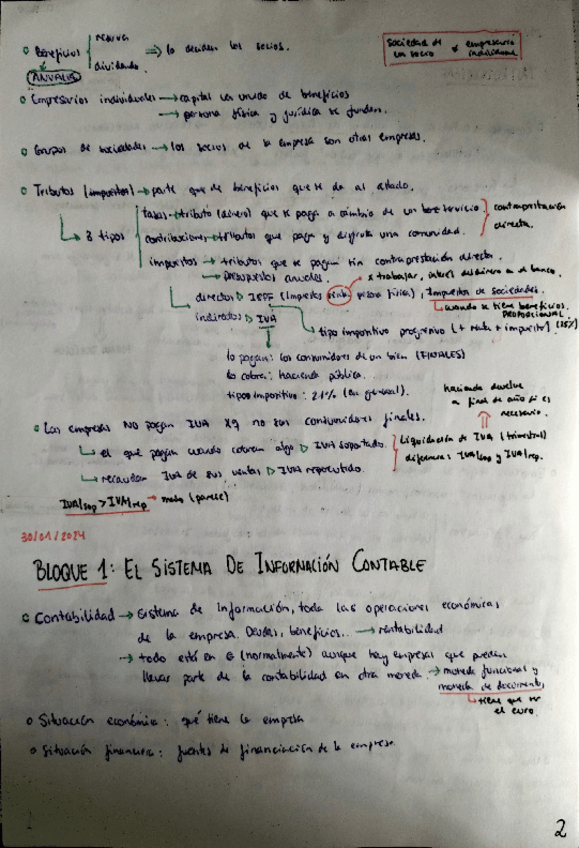 Beneficios reserva
dividendo
⇒ lo deciden los socios.
ANUALES
sociedad de un socio ≠ empresario individual
Empresarios individuales → capital un unido de beneficios
→ persona física y jurídica se funden.
Grupos de sociedades → los socios de la empresa son otras empresas.
Tributos (impuestos) → parte que de beneficios que se da al estado.
↳ 3 tipos
tasas → tributo (dinero) que se paga a cambio de un servicio
contribuciones → tributos que paga y disfruta una comunidad.
contraprestación directa.
impuestos → tributos que se pagan sin contraprestación directa.
→ presupuestos anuales.
x trabajar, interés del dinero en el banco.
directos ▷ IRPF (Impuestos renta persona física), Impuestos de sociedades.
↳ cuando se tiene beneficios.
PROPORCIONAL (25%)
indirectos ▷ IVA
→ tipo impositivo progresivo (+ renta + impuesto)
lo pagan: los consumidores de un bien (FINALES)
lo cobra: hacienda pública.
tipo impositivo: 21% (en general).
hacienda devuelve a final de año si es necesario.
Las empresas NO pagan IVA xq no son consumidores finales.
↳ el que pagan cuando compran algo ▷ IVA soportado.
↳ recaudan IVA de sus ventas ▷ IVA repercutido.
Liquidación de IVA (trimestral)
diferencia: IVA/sop y IVA/rep.
IVA/sop > IVA/rep → malo (parece)
30/01/2024
BLOQUE 1: EL SISTEMA DE INFORMACIÓN CONTABLE
Contabilidad → sistema de información, toda las operaciones económicas
de la empresa. Deudas, beneficios... → rentabilidad
→ todo está en € (normalmente) aunque hay empresas que pueden
llevar parte de la contabilidad en otra moneda. → moneda funcional y
moneda de documento,
↳ tiene que ser el euro.
Situación económica: qué tiene la empresa
Situación financiera: fuentes de financiación de la empresa.
2